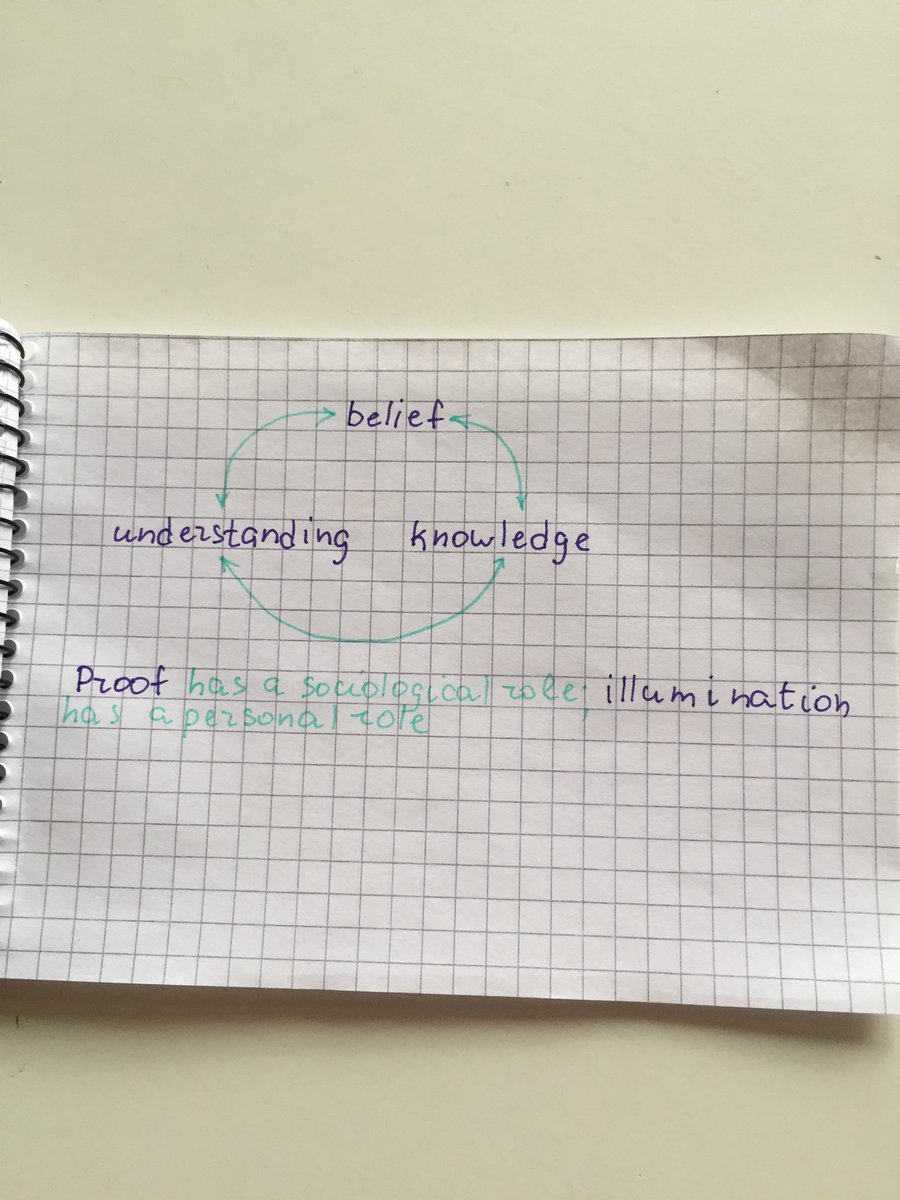 belief
understanding knowledge
Proof has a sociological role; illumination
has a personal role